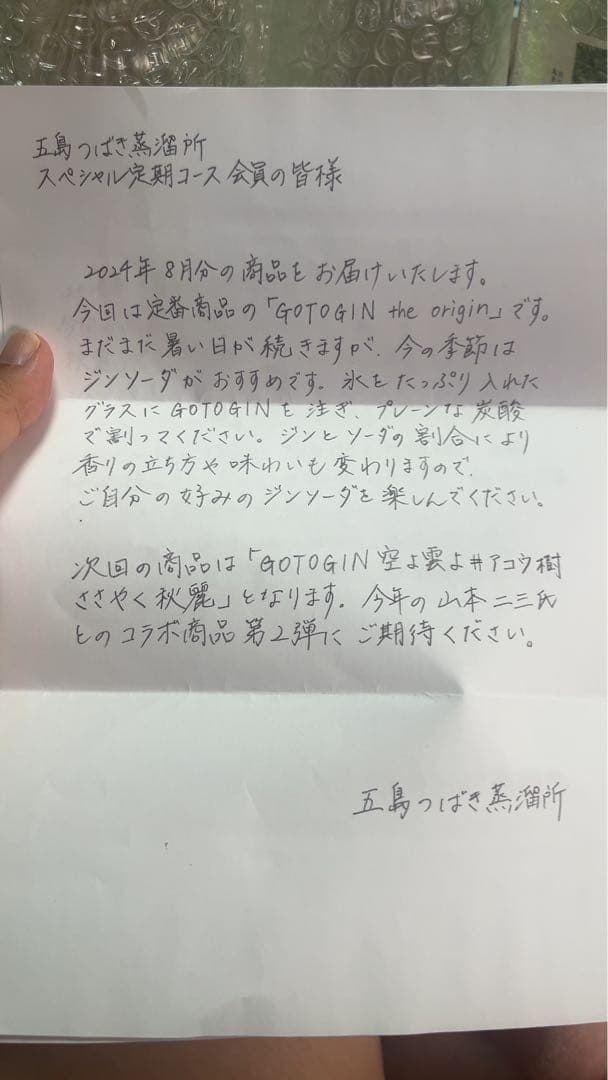 五島つばき蒸溜所
スペシャル定期コース会員の皆様
2024年8月分の商品をお届けいたします。
今回は定番商品の「GOTOGIN the origin」です。
まだまだ暑い日が続きますが、今の季節は
ジンソーダがおすすめです。氷をたっぷり入れた
グラスにGOTOGINを注ぎ、プレーンな炭酸
で割ってください。ジンとソーダの割合により
香りの立ち方や味わいも変わりますので、
ご自分の好みのジンソーダを楽しんでください。
次回の商品は「GOTOGIN 空よ雲よ#アコウ樹
ささやく秋麗」となります。今年の山本二三氏
とのコラボ商品第2弾にご期待ください。
五島つばき蒸溜所